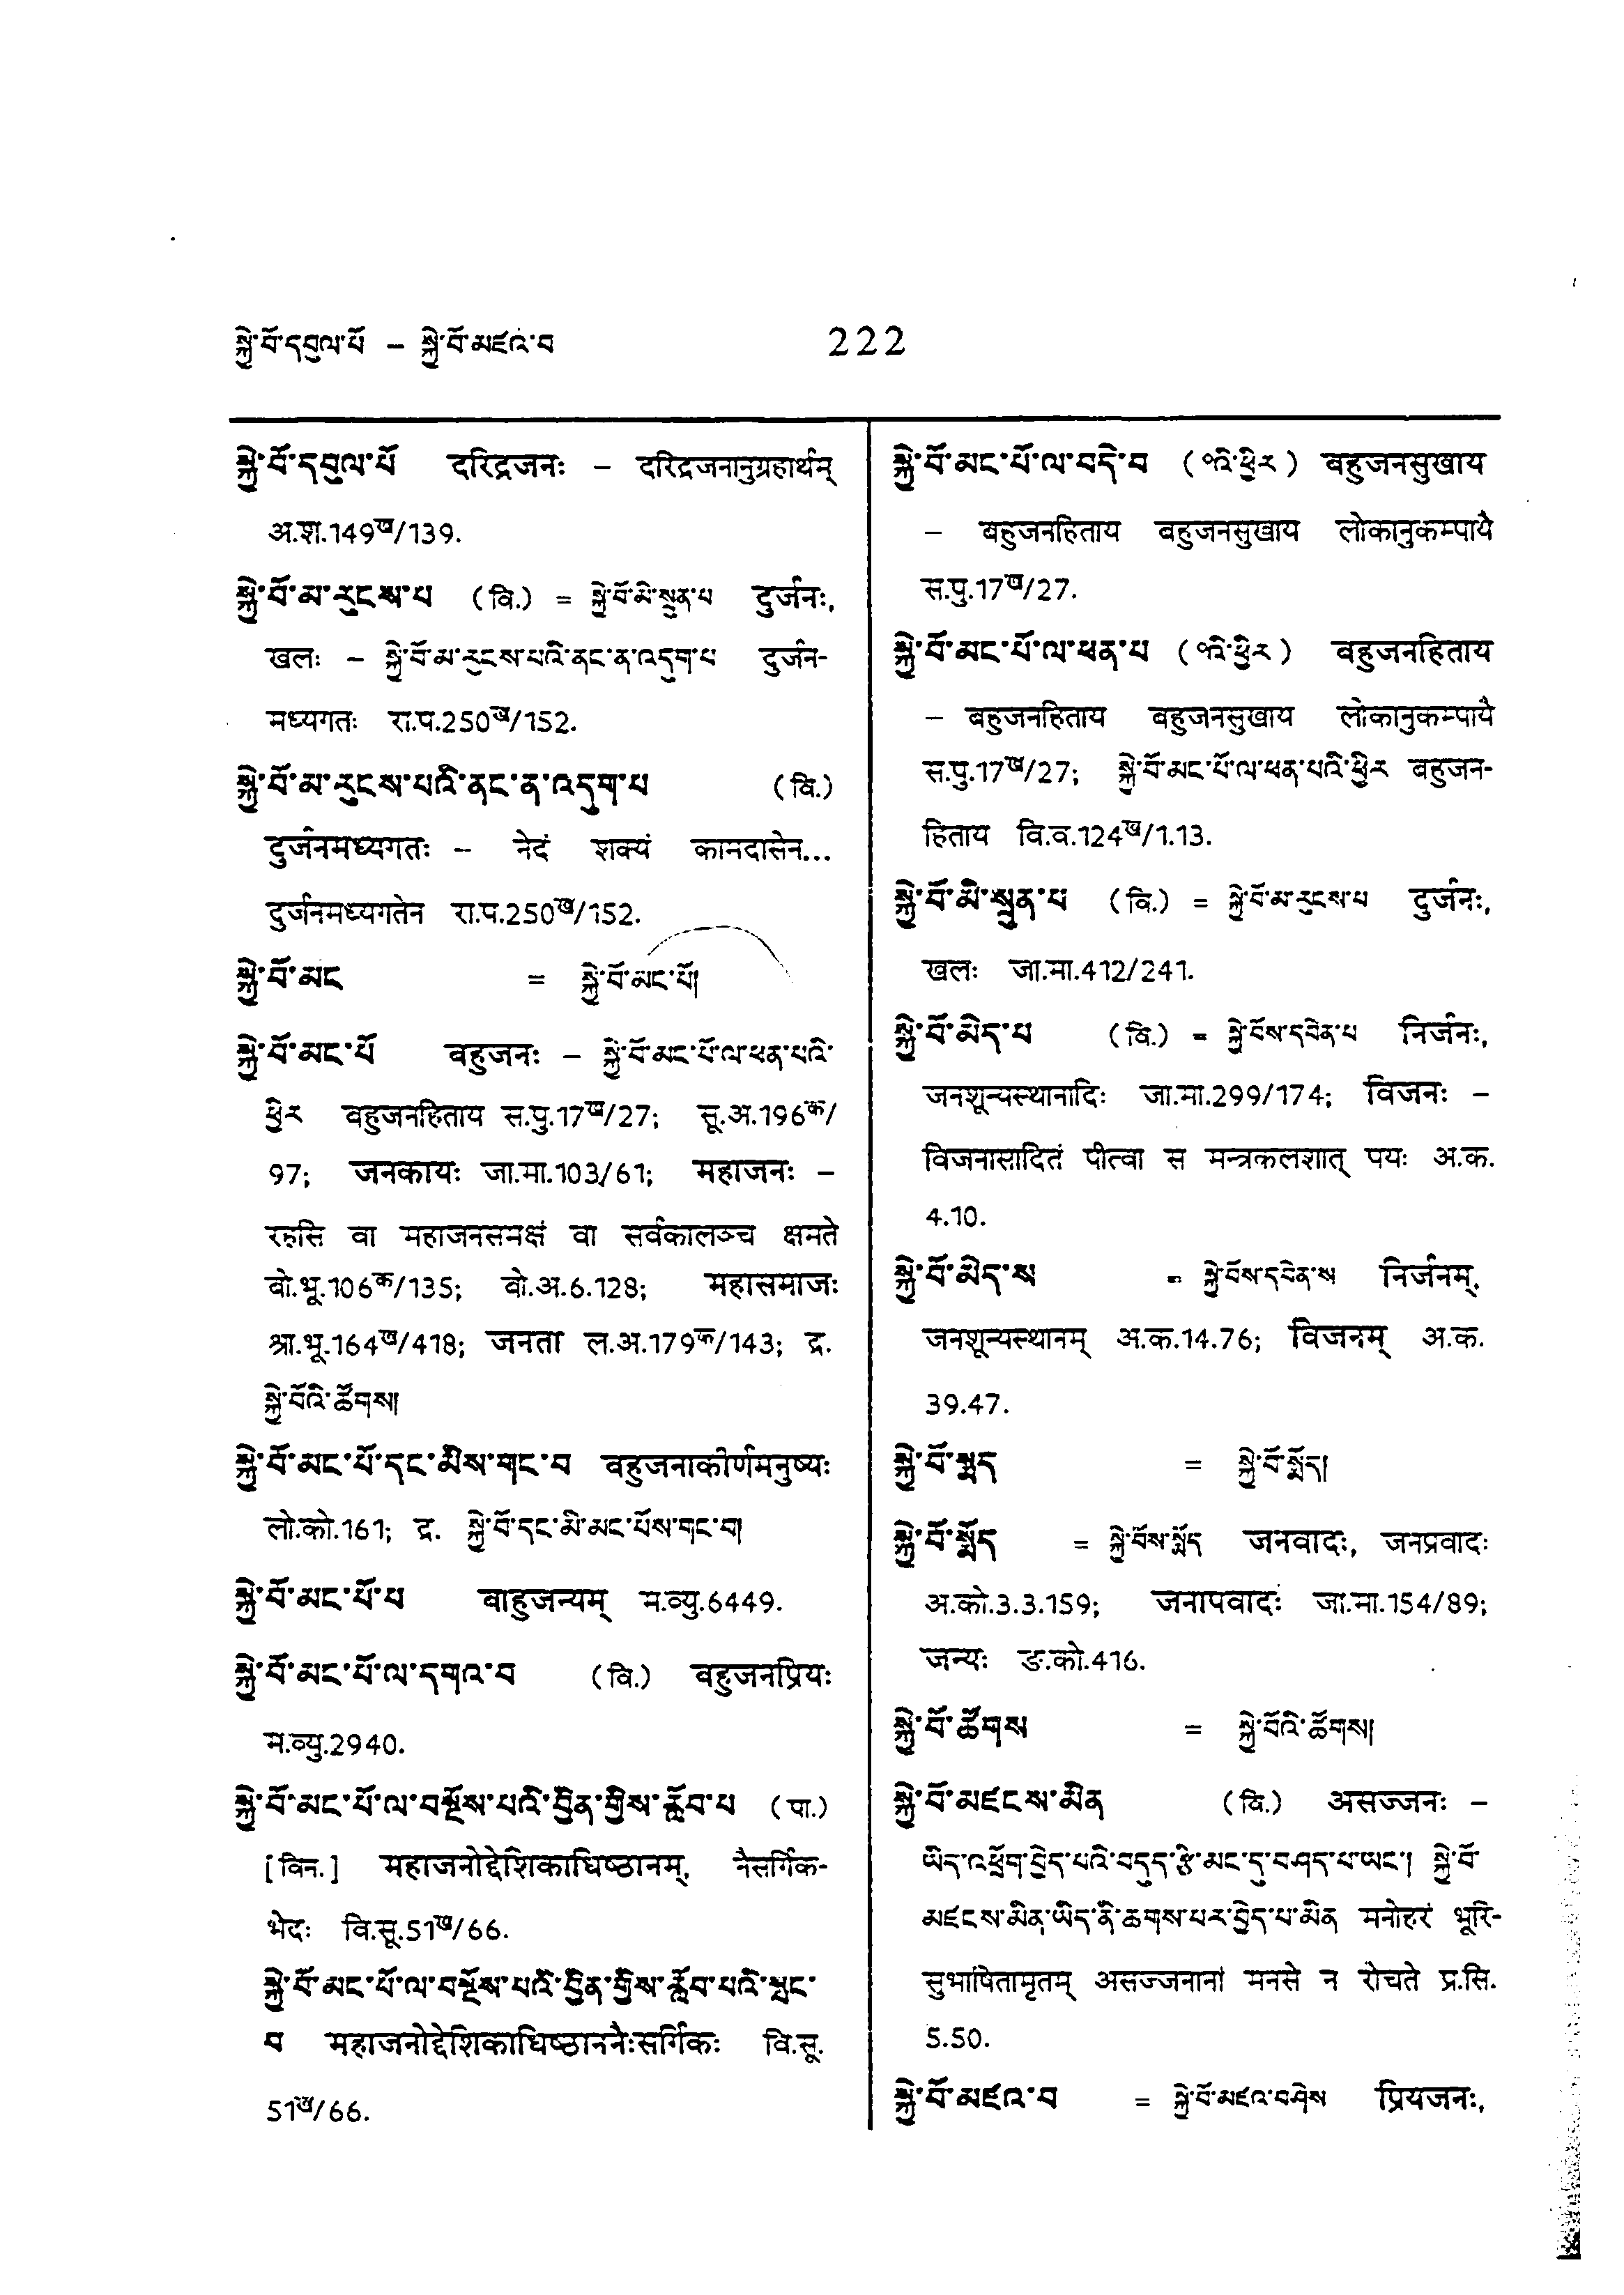 སྐྱེ་བོ་དབུལ་པོ – སྐྱེ་བོ་མཛའ་བ 222
སྐྱེ་བོ་དབུལ་པོ दरिद्रजनः – दरिद्रजनानुग्रहार्थम्
अ.श.149ख/139.
སྐྱེ་བོ་མ་རུངས་པ (वि.) = སྐྱེ་བོ་མི་སྡུན་པ दुर्जनः,
खलः – སྐྱེ་བོ་མ་རུངས་པའི་ནང་ན་འདུག་པ दुर्जन-
मध्यगतः रा.प.250ख/152.
སྐྱེ་བོ་མ་རུངས་པའི་ནང་ན་འདུག་པ (वि.)
दुर्जनमध्यगतः – नेदं शक्यं कामदासेन...
दुर्जनमध्यगतेन रा.प.250ख/152.
སྐྱེ་བོ་མང = སྐྱེ་བོ་མང་པོ།
སྐྱེ་བོ་མང་པོ बहुजनः – སྐྱེ་བོ་མང་པོ་ལ་ཕན་པའི་
ཕྱིར बहुजनहिताय स.पु.17ख/27; सू.अ.196क/
97; जनकायः जा.मा.103/61; महाजनः –
रहसि वा महाजनसमक्षं वा सर्वकालञ्च क्षमते
बो.भू.106क/135; बो.अ.6.128; महासमाजः
श्रा.भू.164ख/418; जनता ल.अ.179क/143; द्र.
སྐྱེ་བོའི་ཚོགས།
སྐྱེ་བོ་མང་པོ་དང་མིས་གང་བ बहुजनाकीर्णमनुष्यः
लो.को.161; द्र. སྐྱེ་བོ་དང་མི་མང་པོས་གང་བ།
སྐྱེ་བོ་མང་པོ་པ बाहुजन्यम् म.व्यु.6449.
སྐྱེ་བོ་མང་པོ་ལ་དགའ་བ (वि.) बहुजनप्रियः
म.व्यु.2940.
སྐྱེ་བོ་མང་པོ་ལ་བསྔོས་པའི་བྱིན་གྱིས་རློབ་པ (पा.)
[विन.] महाजनोद्देशिकाधिष्ठानम्, नैसर्गिक-
भेदः वि.सू.51ख/66.
སྐྱེ་བོ་མང་པོ་ལ་བསྔོས་པའི་བྱིན་གྱིས་རློབ་པའི་སྤང་
བ महाजनोद्देशिकाधिष्ठाननैःसर्गिकः वि.सू.
51ख/66.
སྐྱེ་བོ་མང་པོ་ལ་བདེ་བ (འི་ཕྱིར) बहुजनसुखाय
– बहुजनहिताय बहुजनसुखाय लोकानुकम्पायै
स.पु.17ख/27.
སྐྱེ་བོ་མང་པོ་ལ་ཕན་པ (འི་ཕྱིར) बहुजनहिताय
– बहुजनहिताय बहुजनसुखाय लोकानुकम्पायै
स.पु.17ख/27; སྐྱེ་བོ་མང་པོ་ལ་ཕན་པའི་ཕྱིར बहुजन-
हिताय वि.व.124ख/1.13.
སྐྱེ་བོ་མི་སྡུན་པ (वि.) = སྐྱེ་བོ་མ་རུངས་པ दुर्जनः,
खलः जा.मा.412/241.
སྐྱེ་བོ་མེད་པ (वि.) = སྐྱེ་བོས་དབེན་པ निर्जनः,
जनशून्यस्थानादिः जा.मा.299/174; विजनः –
विजनासादितं पीत्वा स मन्त्रकलशात् पयः अ.क.
4.10.
སྐྱེ་བོ་མེད་ས = སྐྱེ་བོས་དབེན་ས निर्जनम्,
जनशून्यस्थानम् अ.क.14.76; विजनम् अ.क.
39.47.
སྐྱེ་བོ་སྨད = སྐྱེ་བོ་སྨོད།
སྐྱེ་བོ་སྨོད = སྐྱེ་བོས་སྨོད जनवादः, जनप्रवादः
अ.को.3.3.159; जनापवादः जा.मा.154/89;
जन्यः ङ.को.416.
སྐྱེ་བོ་ཚོགས = སྐྱེ་བོའི་ཚོགས།
སྐྱེ་བོ་མཛངས་མིན (वि.) असज्जनः –
ཡིད་འཕྲོག་བྱེད་པའི་བདུད་རྩི་མང་དུ་བཤད་པ་ཡང་། སྐྱེ་བོ་
མཛངས་མིན་ཡིད་ནི་ཆགས་པར་བྱེད་པ་མིན मनोहरं भूरि-
सुभाषितामृतम् असज्जनानां मनसे न रोचते प्र.सि.
5.50.
སྐྱེ་བོ་མཛའ་བ = སྐྱེ་བོ་མཛའ་བཤེས प्रियजनः,